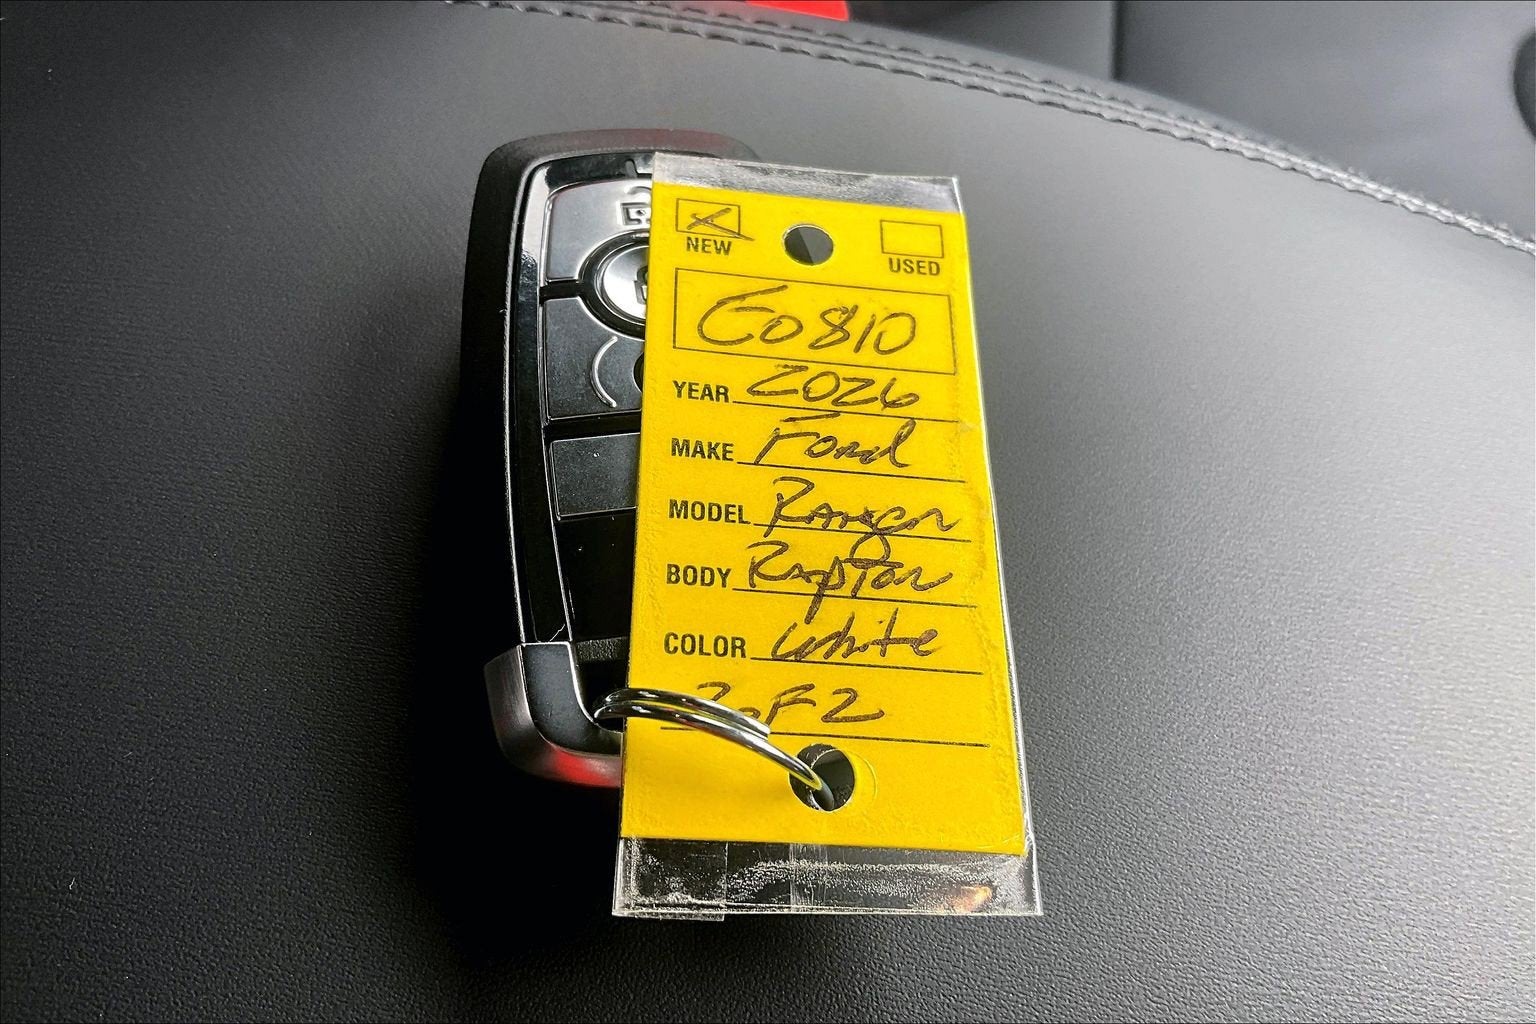 NEW USED
E0810
YEAR 2026
MAKE Ford
MODEL Ranger
BODY Raptor
COLOR White
2 oF 2